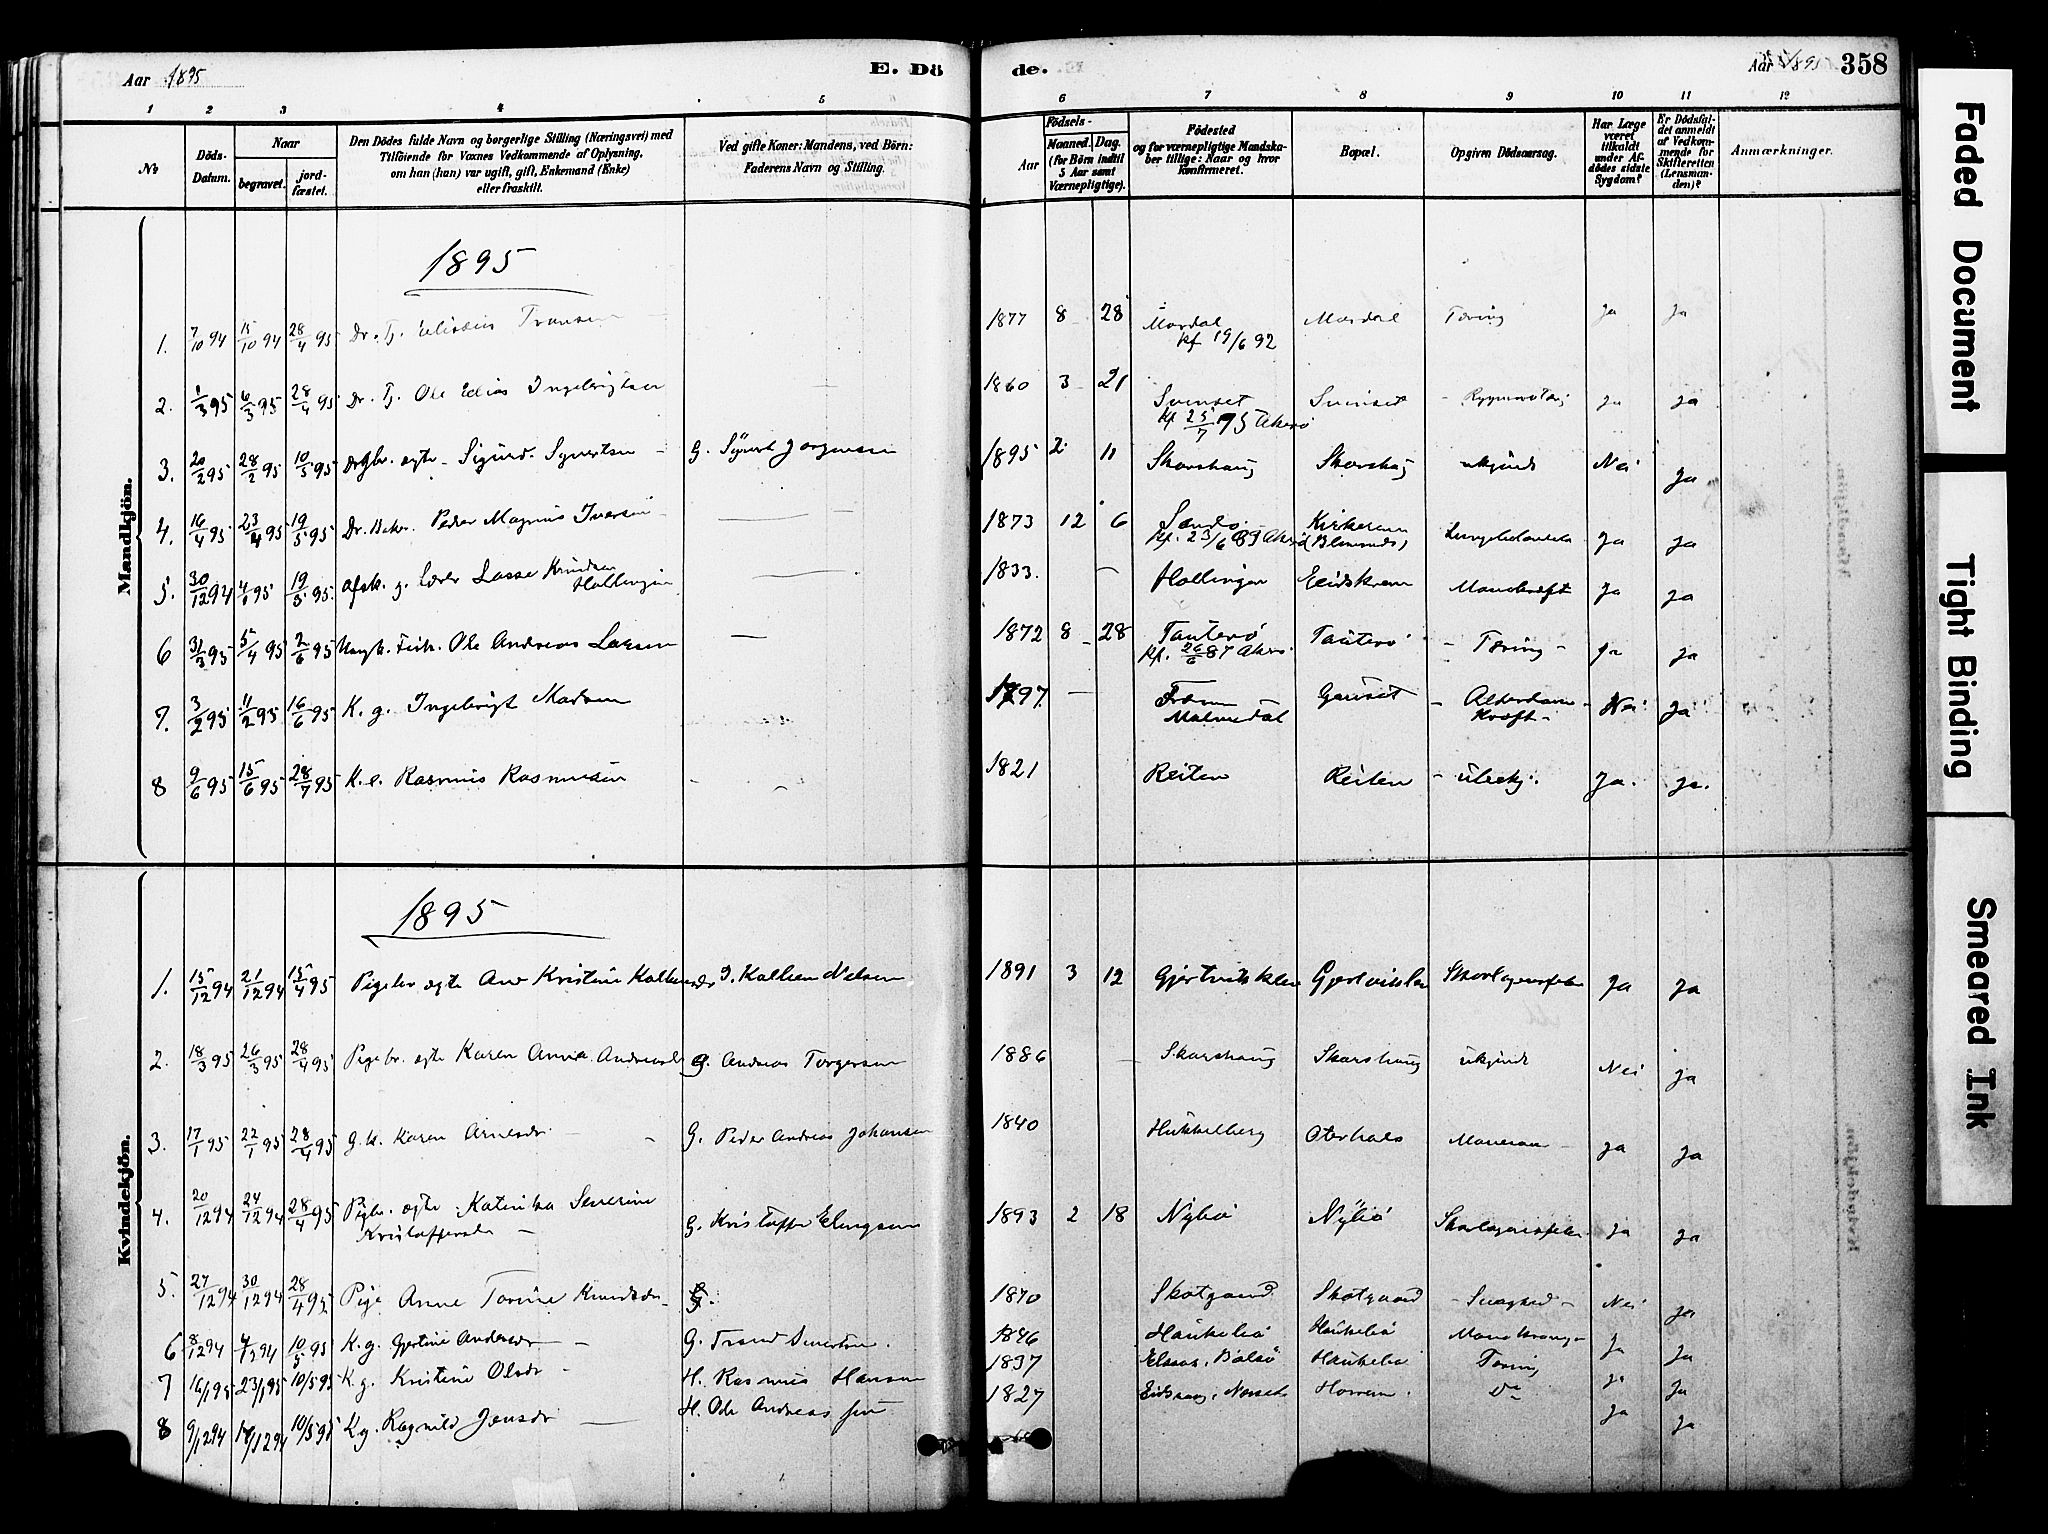 Aar 1895
E. Dö
de.
Aar 1895
358
1 2 3 4 5 6 7 8 9 10 11 12
No
Döds-Datum.
Naar
begravet.
jord-fæstet.
Den Dödes fulde Navn og borgerlige Stilling (Næringsvei) med
Tilföiende for Voxnes Vedkommende af Oplysning,
om han (hun) var ugift, gift, Enkemand (Enke)
eller fraskilt.
Ved gifte Koner: Mandens, ved Börn:
Faderens Navn og Stilling.
Födsels-
Aar
Maaned. Dag.
(for Börn indtil
5 Aar samt
Værnepligtige).
Födested
og for værnepligtige Mandska-
ber tillige: Naar og hvor
konfirmeret.
Bopæl.
Opgiven Dödsaarsag.
Har Læge
været
tilkaldt
under Af-
dödes sidste
Sygdom?
Er Dödsfal-
det anmeldt
af Vedkom-
mende for
Skifteretten
(Lensman-
den)?
Anmærkninger.
Mandkjön.
1895
1. 7/10 94 15/10 94 28/4 95 Dr. Tj. Elisæus Transen 1877 8 28 Mordal Kf 19/6 92 Mordal Tæring Ja Ja
2. 1/3 95 6/3 95 28/4 95 Dr. Tj. Ole Elias Ingebrigtsen 1860 3 21 Svinset Kf. 25/7 75 Akerø Svinset Ja Ja
3. 20/2 95 28/2 95 10/5 95 Drgbr. ægte Sigurd Syvertsen G. Syvert Jørgensen 1895 2 11 Skarshaug Skarshaug ukjendt Nei Ja
4. 16/4 95 23/4 95 19/5 95 Dr. Peder Magnus Iversen 1873 12 6 Sandø Kf. 23/6 89 Akerø Kirkerem Lungebetændelse Ja Ja
5. 30/12 94 4/1 95 19/5 95 afsk. g. Lærer Lasse Knudsen Hollingen 1833. Hollingen Eidskrem Mavekræft Ja Ja
6 31/3 95 5/4 95 2/6 95 Ungk. Fisk. Ole Andreas Larsen 1872 8 28 Tauterø Kf. 26/6 87 Akerø Tauterø Tæring Ja Ja
7. 3/2 95 11/2 95 16/6 95 K. g. Ingebrigt Madsen 1797 Fræn Malmedal Gauset Alderdoms Kræft Nei Ja
8 9/6 95 15/6 95 28/7 95 K. e. Rasmus Rasmusen 1821 Reiten Reiten ubekj. Ja. Ja.
Kvindekjön.
1895
1. 15/12 94 21/12 94 15/4 95 Pigebr ægte Ane Kristine G. Kolbein Nelsen 1891 3 12 Skarlagensfeber Ja Ja
2. 18/3 95 26/3 95 28/4 95 Pigebr. ægte Karen Anna Andreasdr G. Andreas Torgersen 1886 Skarshaug Skarshaug ukjendt Nei Ja
3. 17/1 95 22/1 95 28/4 95 G.k. Karen Arnesdr. G. Peder Andreas Johansen 1840 Hukkelberg Oterhals Ja Ja
4. 20/12 94 24/12 94 28/4 95 Pigebr. ægte Katrika Severine Kristoffersdr G. Kristoffer Elingsen 1893 2 18 Nybø Nybø Skarlagensfeber Ja Ja
5. 27/12 94 30/12 94 28/4 95 Pige Anne Torine Knudsdr. G. 1870 Skotgaard Skotgaard Svaghed Nei Ja
6 8/12 94 10/5 95 K. g. Gjertine Andersdr G. Trond Sivertsen. 1846 Haukebø Haukebø Ja Ja
7 16/1 95 23/1 95 10/5 95 K.g. Kristine Olsdr H. Rasmus Hansen 1837 Bolsø Haukebø Tæring Ja Ja
8 9/12 94 17/12 94 10/5 95 K.g. Ragnild Jensdr H. Ole Andreas 1827 Horrem. Do Ja Ja
Faded Document
Tight Binding
Smeared Ink